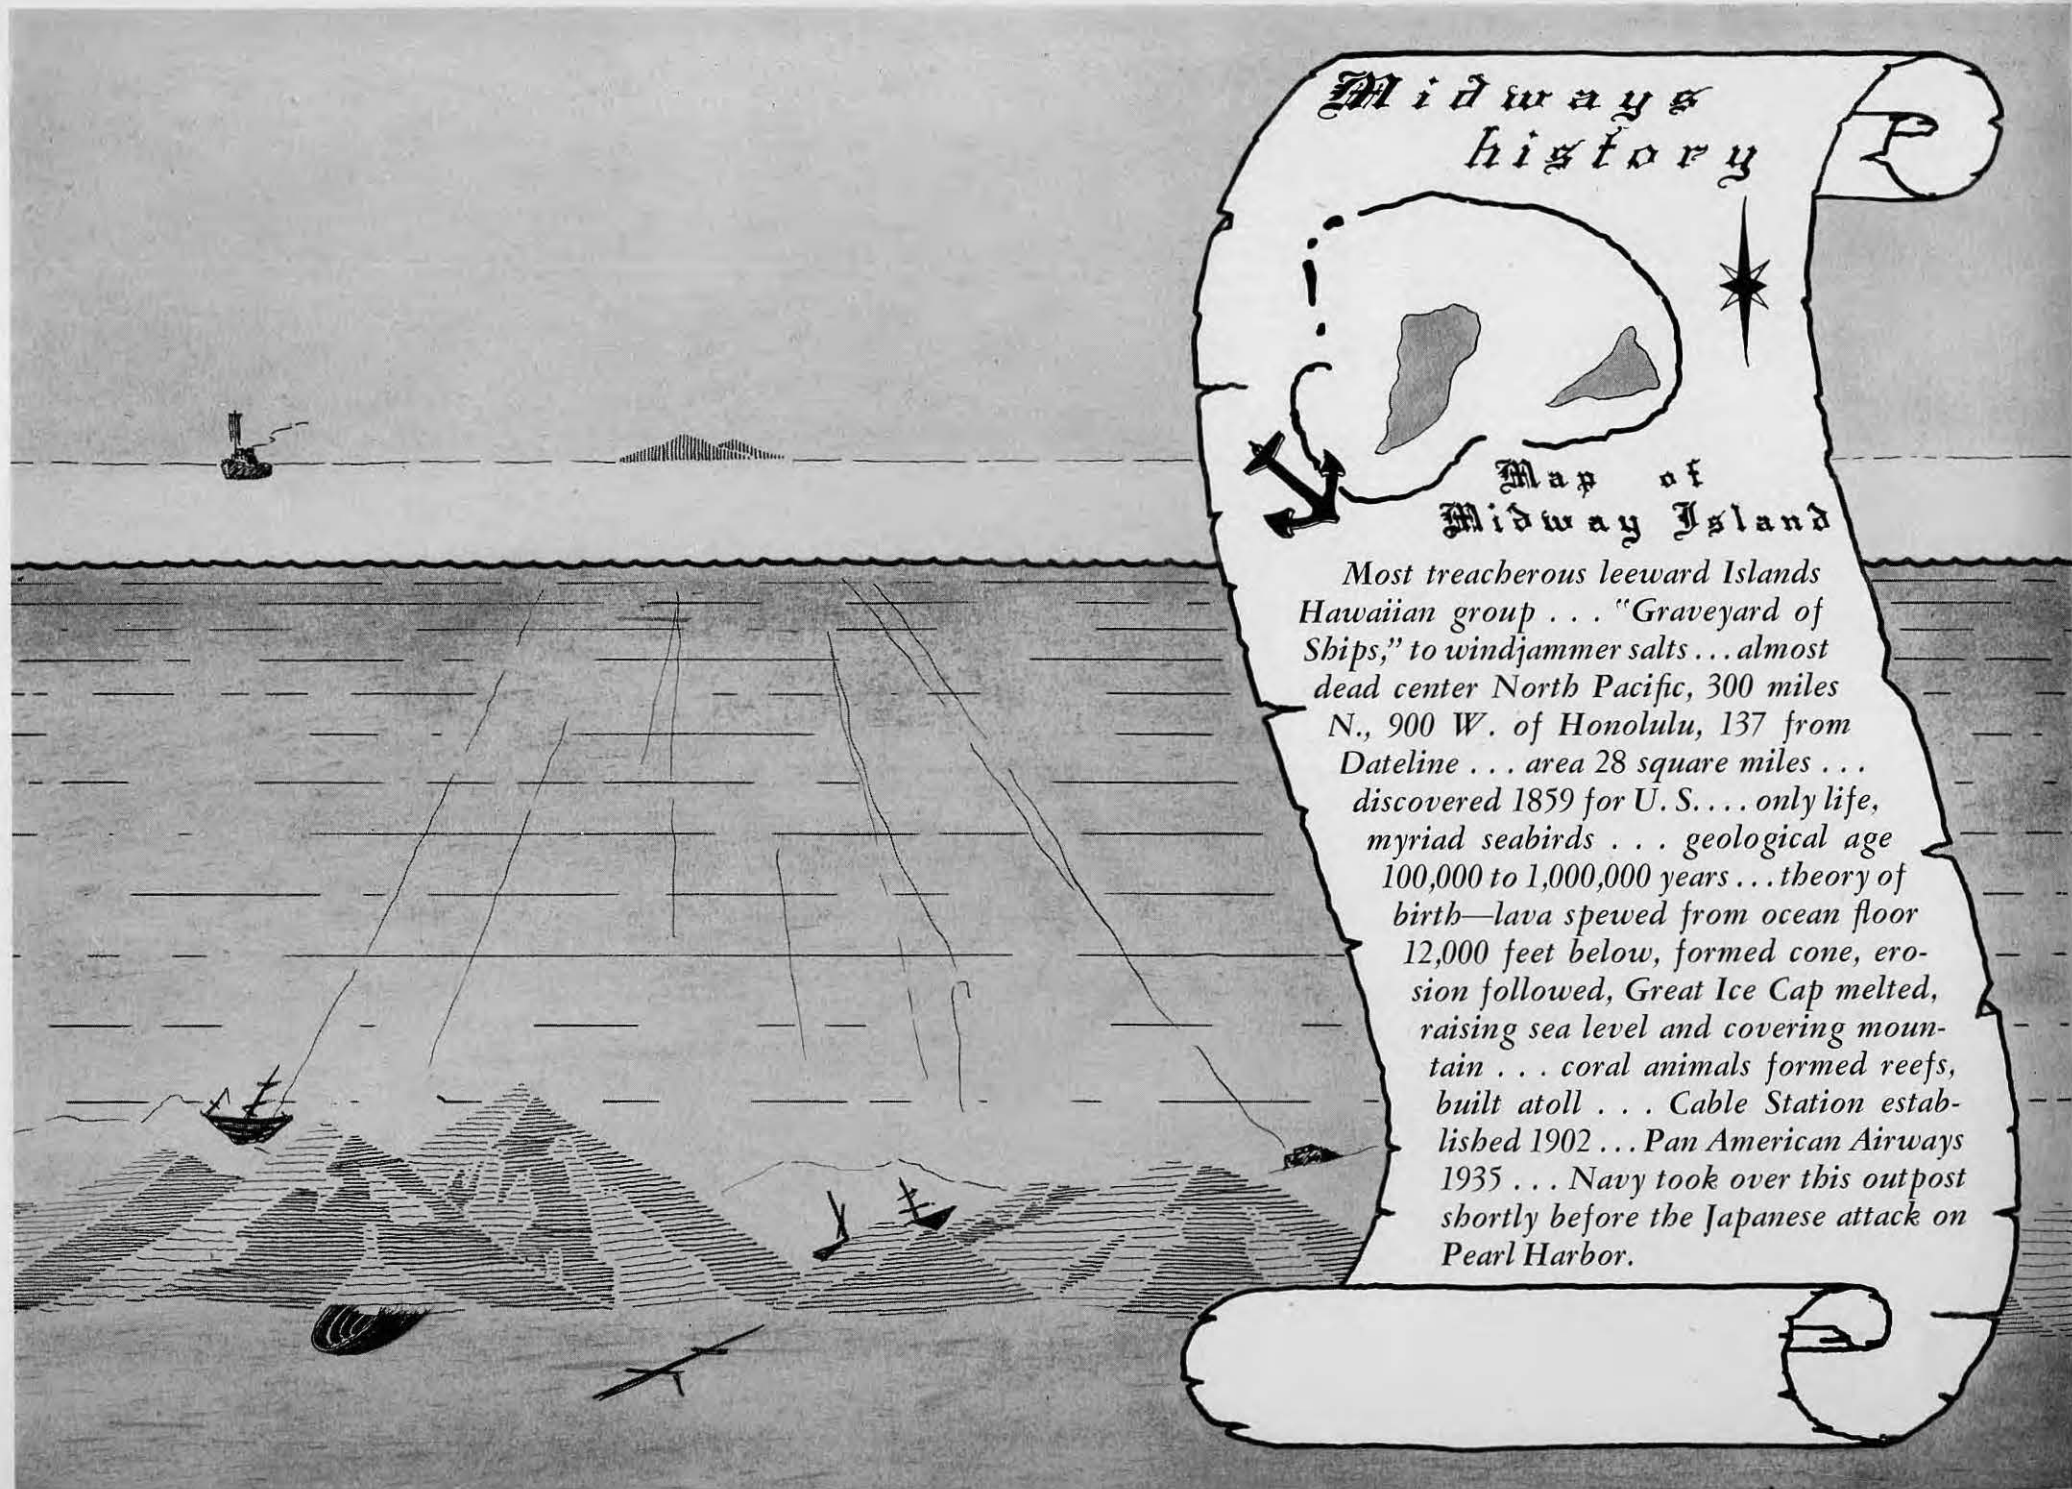 Midways
history
Map of
Midway Island
Most treacherous leeward Islands
Hawaiian group . . . "Graveyard of
Ships," to windjammer salts . . . almost
dead center North Pacific, 300 miles
N., 900 W. of Honolulu, 137 from
Dateline . . . area 28 square miles . . .
discovered 1859 for U. S. . . . only life,
myriad seabirds . . . geological age
100,000 to 1,000,000 years . . . theory of
birth—lava spewed from ocean floor
12,000 feet below, formed cone, ero-
sion followed, Great Ice Cap melted,
raising sea level and covering moun-
tain . . . coral animals formed reefs,
built atoll . . . Cable Station estab-
lished 1902 . . . Pan American Airways
1935 . . . Navy took over this outpost
shortly before the Japanese attack on
Pearl Harbor.